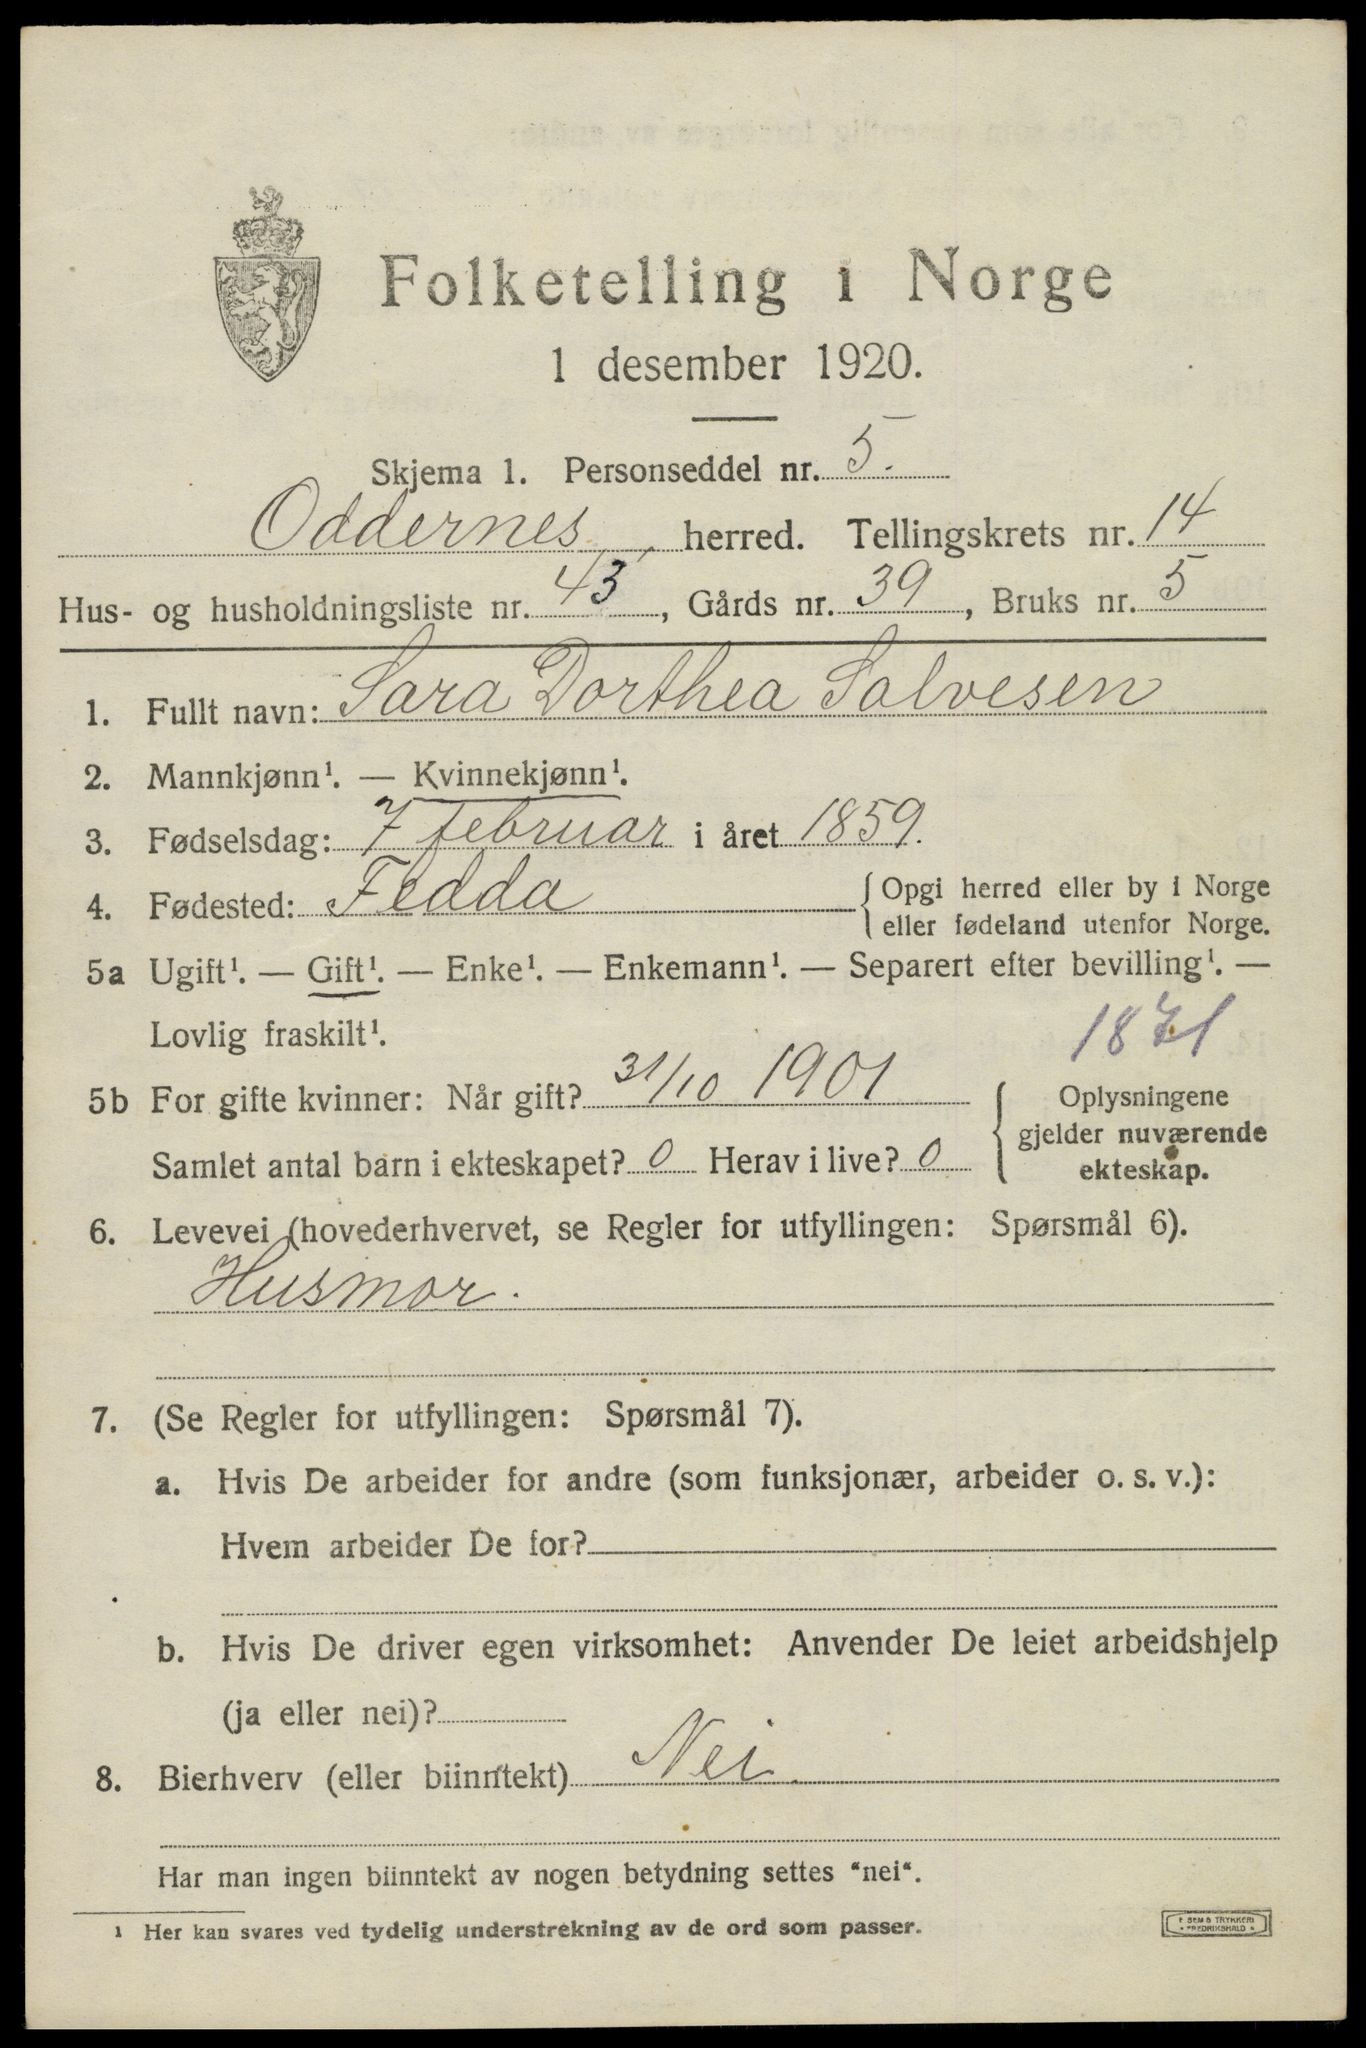 Folketelling i Norge
1 desember 1920.
Skjema 1. Personseddel nr. 5.
Oddernes herred. Tellingskrets nr. 14
Hus- og husholdningsliste nr. 43, Gårds nr. 39, Bruks nr. 5
1. Fullt navn: Sara Dorthea Salvesen
2. Mannkjønn¹. — Kvinnekjønn¹.
3. Fødselsdag: 7 februar i året 1859.
4. Fødested: Fedda {Opgi herred eller by i Norge
eller fødeland utenfor Norge.
5a Ugift¹. — Gift¹. — Enke¹. — Enkemann¹. — Separert efter bevilling¹. —
Lovlig fraskilt¹.
1871
5b For gifte kvinner: Når gift? 31/10 1901
Samlet antal barn i ekteskapet? 0 Herav i live? 0
Oplysningene
gjelder nuværende
ekteskap.
6. Levevei (hovederhvervet, se Regler for utfyllingen: Spørsmål 6).
Husmor.
7. (Se Regler for utfyllingen: Spørsmål 7).
a. Hvis De arbeider for andre (som funksjonær, arbeider o. s. v.):
Hvem arbeider De for?
b. Hvis De driver egen virksomhet: Anvender De leiet arbeidshjelp
(ja eller nei)?
8. Bierhverv (eller biinntekt) Nei
Har man ingen biinntekt av nogen betydning settes "nei".
¹ Her kan svares ved tydelig understrekning av de ord som passer.
SEM & TRYKKERI
FREDRIKSHALD